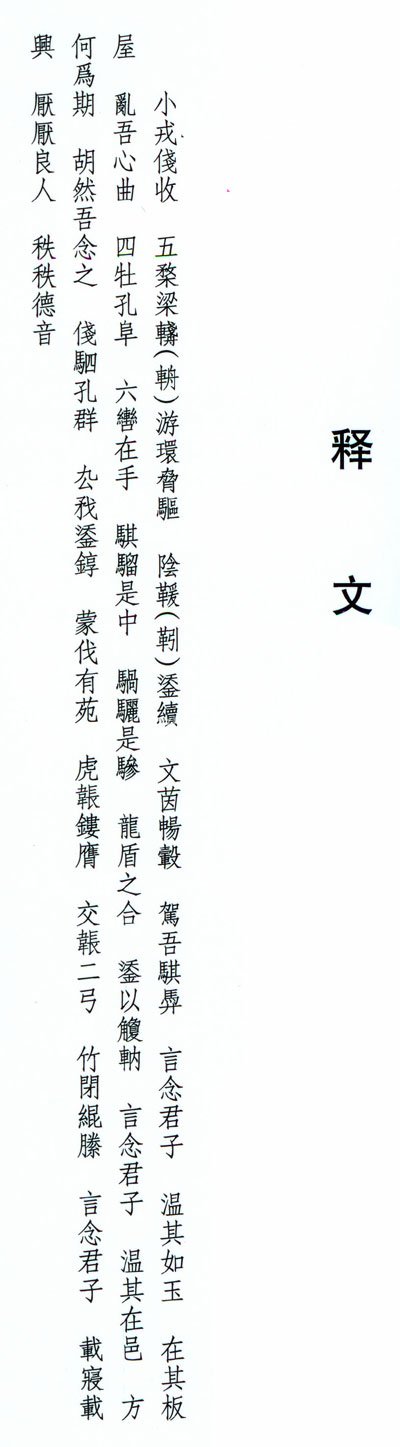 释文
小戎俴收　五楘梁輈(輈)游環脅驅　陰鞎(靷)鋈續　文茵暢轂　駕吾騏馵　言念君子　温其如玉　在其板
屋　亂吾心曲　四牡孔阜　六轡在手　騏騮是中　騧驪是驂　龍盾之合　鋈以觼軜　言念君子　温其在邑　方
何爲期　胡然吾念之　俴駟孔群　厹矛鋈錞　蒙伐有苑　虎韔鏤膺　交韔二弓　竹閉緄縢　言念君子　載寢載
興　厭厭良人　秩秩德音